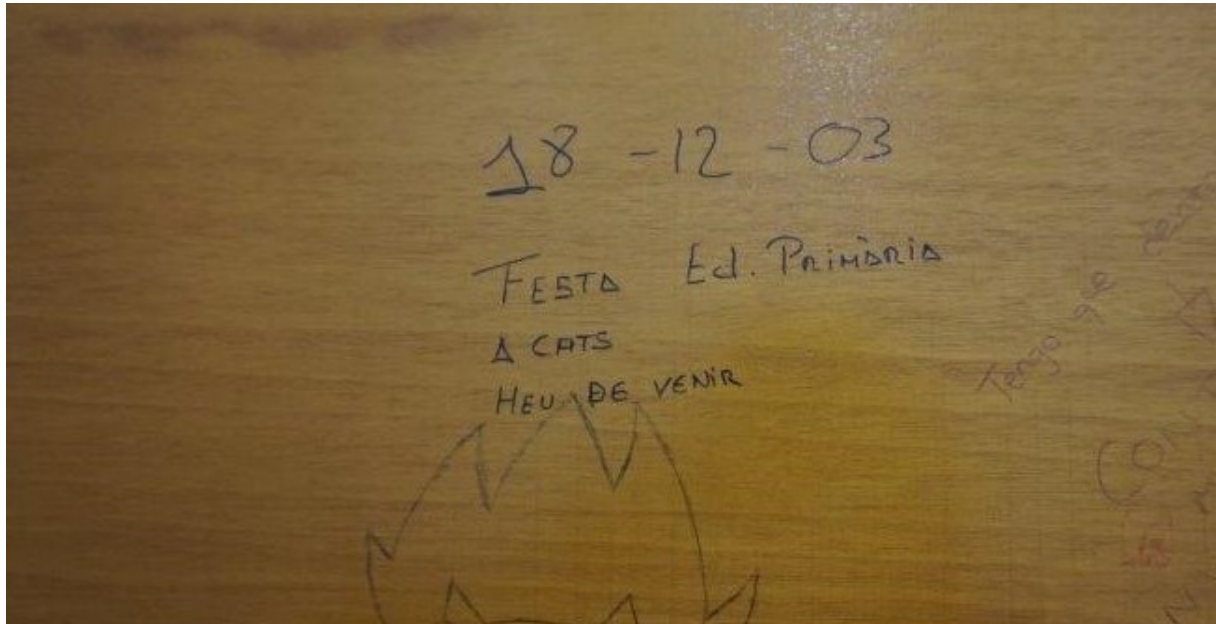 18 -12 - 03
FESTA Ed. PRIMÀRIA
A CATS
HEU DE VENIR
Tengo que
CON